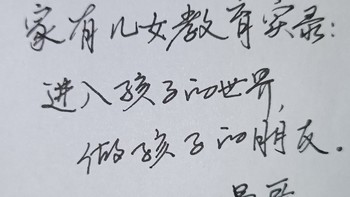 家有儿女教育实录:
进入孩子的世界,
做孩子的朋友.